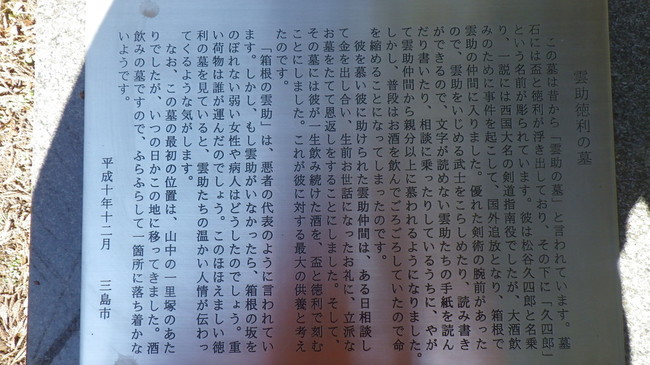 雲助徳利の墓
この墓は昔から「雲助の墓」と言われています。墓
石には盃と徳利が浮き出しており、その下に「久四郎」
という名前が彫られています。彼は松谷久四郎と名乗
り、一説には西国大名の剣道指南役でしたが、大酒飲
みのために事件を起こして、国外追放となり、箱根で
雲助の仲間に入りました。優れた剣術の腕前があった
ので、雲助をいじめる武士をこらしめたり、読み書き
ができるので、文字が読めない雲助たちの手紙を読ん
だり書いたり、相談に乗ったりしているうちに、やが
て雲助仲間から親分以上に慕われるようになりました。
しかし、普段はお酒を飲んでごろごろしていたので命
を縮めることになってしまったのです。
彼を慕い彼に助けられた雲助仲間は、ある日相談し
て金を出し合い、生前お世話になったお礼に、立派な
お墓をたてて恩返しをすることにしました。そして、
その墓には彼が一生飲み続けた酒を、盃と徳利で刻む
ことにしました。これが彼に対する最大の供養と考え
たのです。
「箱根の雲助」は、悪者の代表のように言われてい
ます。しかし、もし雲助がいなかったら、箱根の坂を
のぼれない弱い女性や病人はどうしたのでしょう。重
い荷物は誰が運んだのでしょう。このほほえましい徳
利の墓を見ていると、雲助たちの温かい人情が伝わっ
てくるような気がします。
なお、この墓の最初の位置は、山中の一里塚のあた
りでしたが、いつの日かこの地に移ってきました。酒
飲みの墓ですので、ふらふらして一箇所に落ち着かな
いようです。
平成十年十二月　三島市